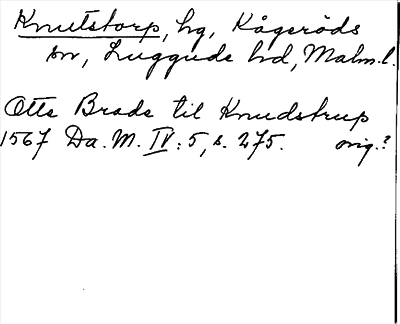 Knutstorp, hg, Kågeröds
sn, Luggude hd, Malm.l.
Otte Brade til Knudstrup
1567 Da. M. IV: 5, s. 275. orig.?